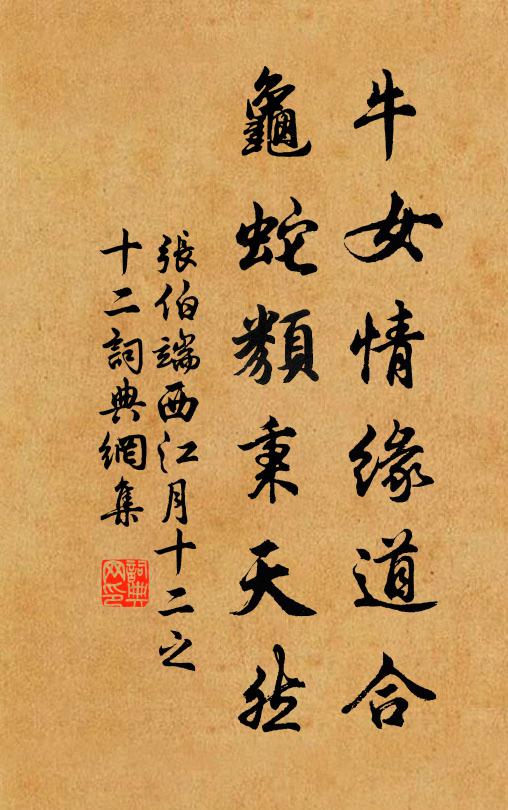 牛女情緣道合
龜蛇類秉天然
張伯端西江月十二之
十二詞典網集
詞典
网印